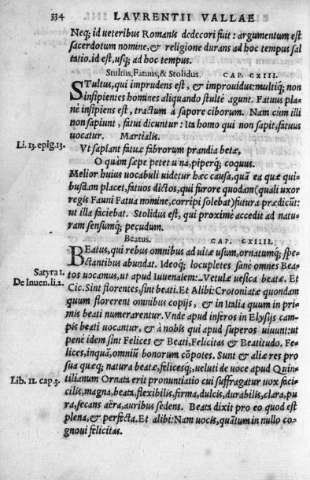 334 LAVRENTII VALLAE
Neq; id ueteribus Romanis dedecori fuit: argumentum est
sacerdotum nomine, & religione durans ad hoc tempus sal
tatio.id est, usq; ad hoc tempus.
Stultus, Fatuus, & Stolidus. CAP. CXIII.
STultus, qui imprudens est, & improuidus: multiq; non
insipientes homines aliquando stultè agunt. Fatuus pla
nè insipiens est, tractum à sapore ciborum. Nam cùm illi
non sapiunt, fatui dicuntur: ita homo qui non sapit, fatuus
uocatur. Martialis.
Li.13.epig.13. Vt sapiant fatuæ fabrorum prandia betæ,
O quàm sæpe petet uina, piperq; coquus.
Melior huius uocabuli uidetur hæc causa, quā ea quæ qui-
busdam placet, fatuos dictos, qui furore quodam (quali uxor
regis Fauni Fatua nomine, corripi solebat) futura prædicūt:
ut illa faciebat. Stolidus est, qui proximè accedit ad natu
ram sensumq; pecudum.
Beatus. CAP. CXIIII.
BEatus, qui rebus omnibus ad uitæ usum, ornatumq; spe-
ctantibus abundat. Ideoq; locupletes sanè omnes Bea-
Satyra 1. tos uocamus, ut apud Iuuenalem: Vetulæ uesica beatæ. Et
De Inuen.li.2. Cic. Sint florentes, sint beati. Et Alibi: Crotoniatæ quondam
quum florerent omnibus copijs, & in Italia quum in pri-
mis beati numerarentur. Vnde apud inferos in Elysijs cam-
pis beati uocantur, & à nobis qui apud superos uiuunt: ut
penè idem sint Felices & Beati, Felicitas & Beatitudo, Fe-
lices, inquā, omniū bonorum cōpotes. Sunt & aliæ res pro
sua quæq; natura beatæ, felicesq;, ueluti de uoce apud Quin-
Lib. 11. cap.3. tilianum Ornata erit pronuntiatio cui suffragatur uox faci-
cilis, magna, beata, flexibilis, firma, dulcis, durabilis, clara, pu
ra, secans aëra, auribus sedens. Beata dixit pro eo quod est
plena, & perfecta. Et alibi: Nam uocis, quātum in nullo co-
gnoui felicitas.